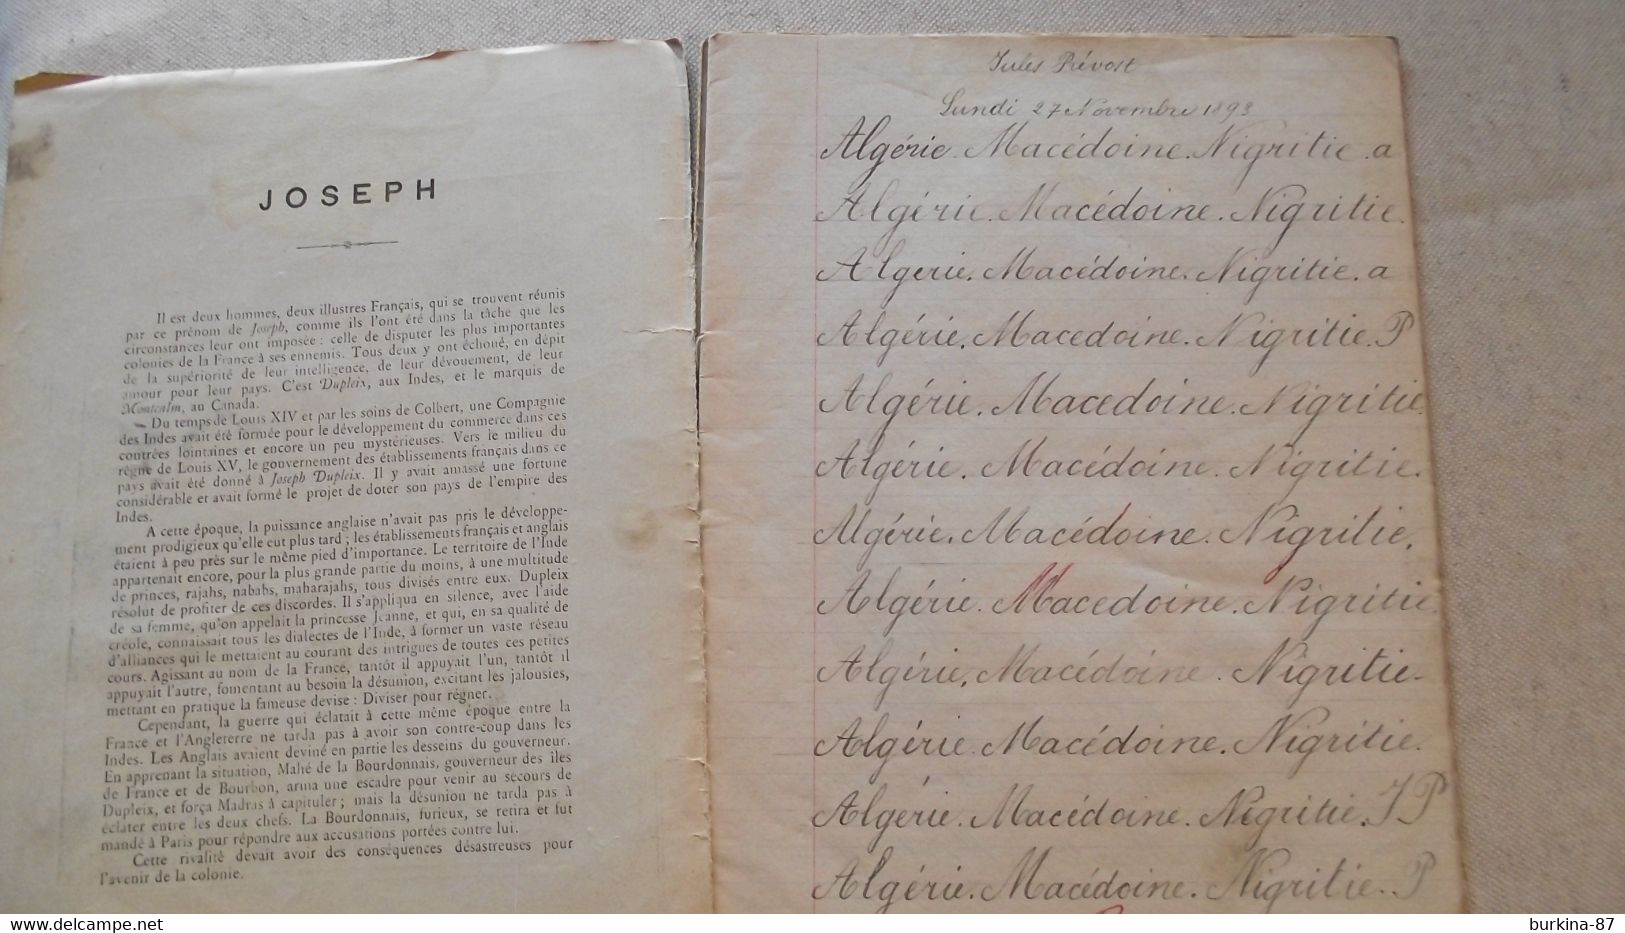 JOSEPH
Il est deux hommes, deux illustres Français, qui se trouvent réunis
par ce prénom de Joseph, comme ils l'ont été dans la tâche que les
circonstances leur ont imposée : celle de disputer les plus importantes
colonies de la France à ses ennemis. Tous deux y ont échoué, en dépit
de la supériorité de leur intelligence, de leur dévouement, de leur
amour pour leur pays. C'est Dupleix, aux Indes, et le marquis de
Montcalm, au Canada.
Du temps de Louis XIV et par les soins de Colbert, une Compagnie
des Indes avait été formée pour le développement du commerce dans ces
contrées lointaines et encore un peu mystérieuses. Vers le milieu du
règne de Louis XV, le gouvernement des établissements français dans ce
pays avait été donné à Joseph Dupleix. Il y avait amassé une fortune
considérable et avait formé le projet de doter son pays de l'empire des
Indes.
A cette époque, la puissance anglaise n'avait pas pris le développe-
ment prodigieux qu'elle eut plus tard ; les établissements français et anglais
étaient à peu près sur le même pied d'importance. Le territoire de l'Inde
appartenait encore, pour la plus grande partie du moins, à une multitude
de princes, rajahs, nababs, maharajahs, tous divisés entre eux. Dupleix
résolut de profiter de ces discordes. Il s'appliqua en silence, avec l'aide
de sa femme, qu'on appelait la princesse Jeanne, et qui, en sa qualité de
créole, connaissait tous les dialectes de l'Inde, à former un vaste réseau
d'alliances qui le mettaient au courant des intrigues de toutes ces petites
cours. Agissant au nom de la France, tantôt il appuyait l'un, tantôt il
appuyait l'autre, fomentant au besoin la désunion, excitant les jalousies,
mettant en pratique la fameuse devise : Diviser pour régner.
Cependant, la guerre qui éclatait à cette même époque entre la
France et l'Angleterre ne tarda pas à avoir son contre-coup dans les
Indes. Les Anglais avaient deviné en partie les desseins du gouverneur.
En apprenant la situation, Mahé de la Bourdonnais, gouverneur des îles
de France et de Bourbon, arma une escadre pour venir au secours de
Dupleix, et força Madras à capituler ; mais la désunion ne tarda pas à
éclater entre les deux chefs. La Bourdonnais, furieux, se retira et fut
mandé à Paris pour répondre aux accusations portées contre lui.
Cette rivalité devait avoir des conséquences désastreuses pour
l'avenir de la colonie.
Jules Prévost
Lundi 27 Novembre 1893
Algérie. Macédoine. Nigritie. a
Algérie. Macédoine. Nigritie.
Algerie. Macédoine. Nigritie. a
Algérie. Macedoine. Nigritie. P
Algérie. Macedoine. Nigritie
Algérie. Macédoine. Nigritie.
Algérie. Macédoine. Nigritie.
Algérie. Macedoine. Nigritie
Algérie. Macédoine. Nigritie-
Algérie. Macédoine. Nigritie.
Algérie. Macédoine. Negritie. J P
Algérie. Macédoine. Nigritie. P
burkina-87